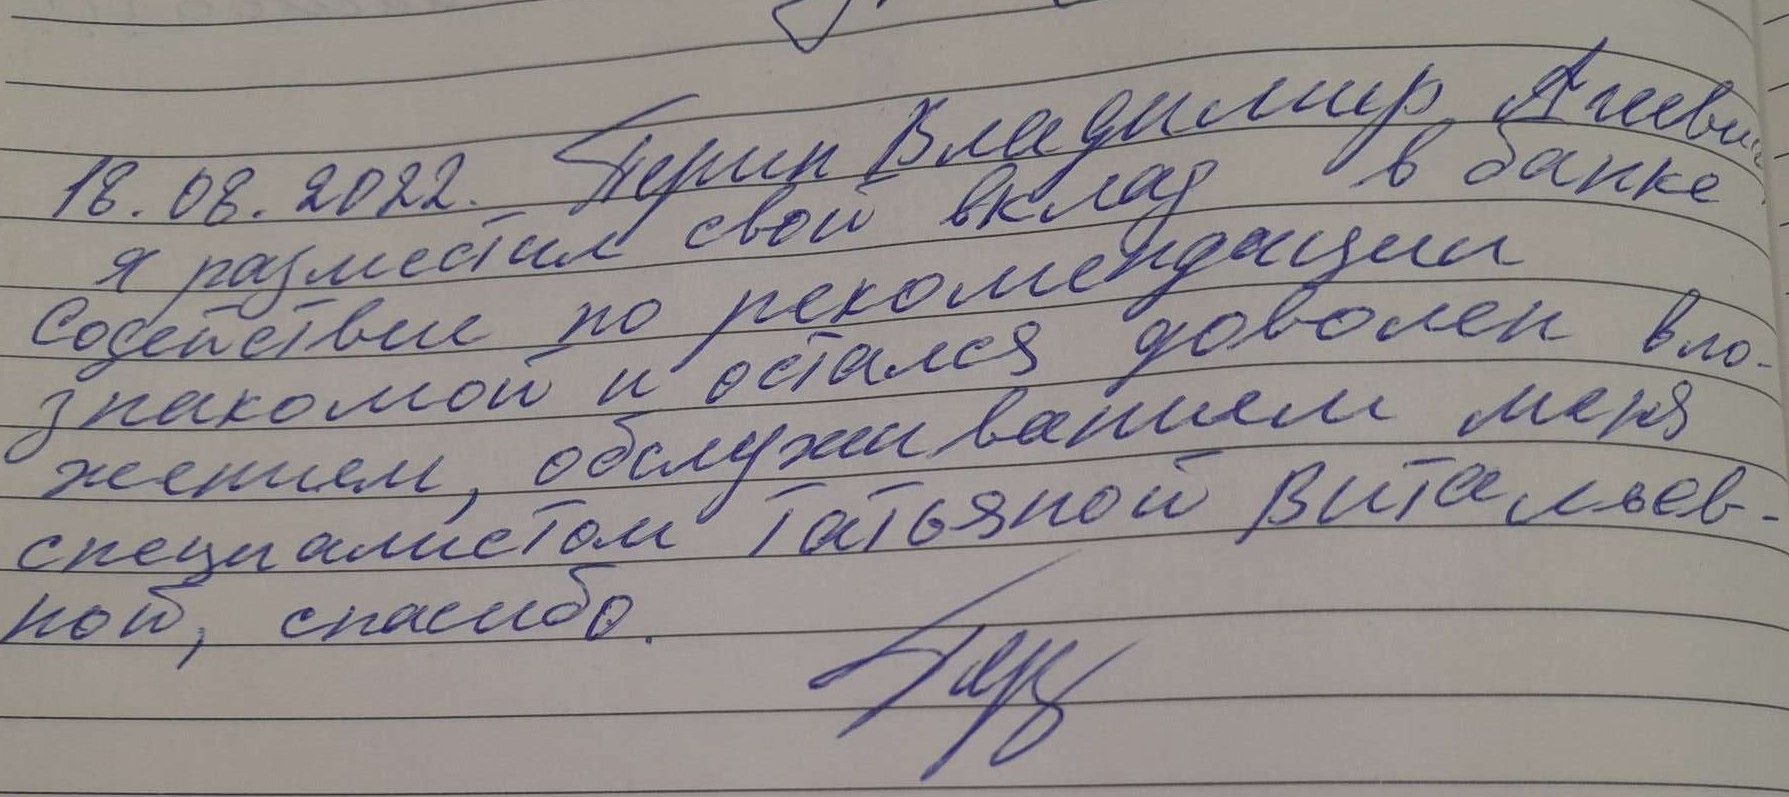 18.08.2022. Перин Владимир
я разместил свой вклад в банке
Содействие по рекомендации
знакомой и остался доволен вло-
жением, обслуживанием меня
специалистом Татьяной Витальев-
ной, спасибо.